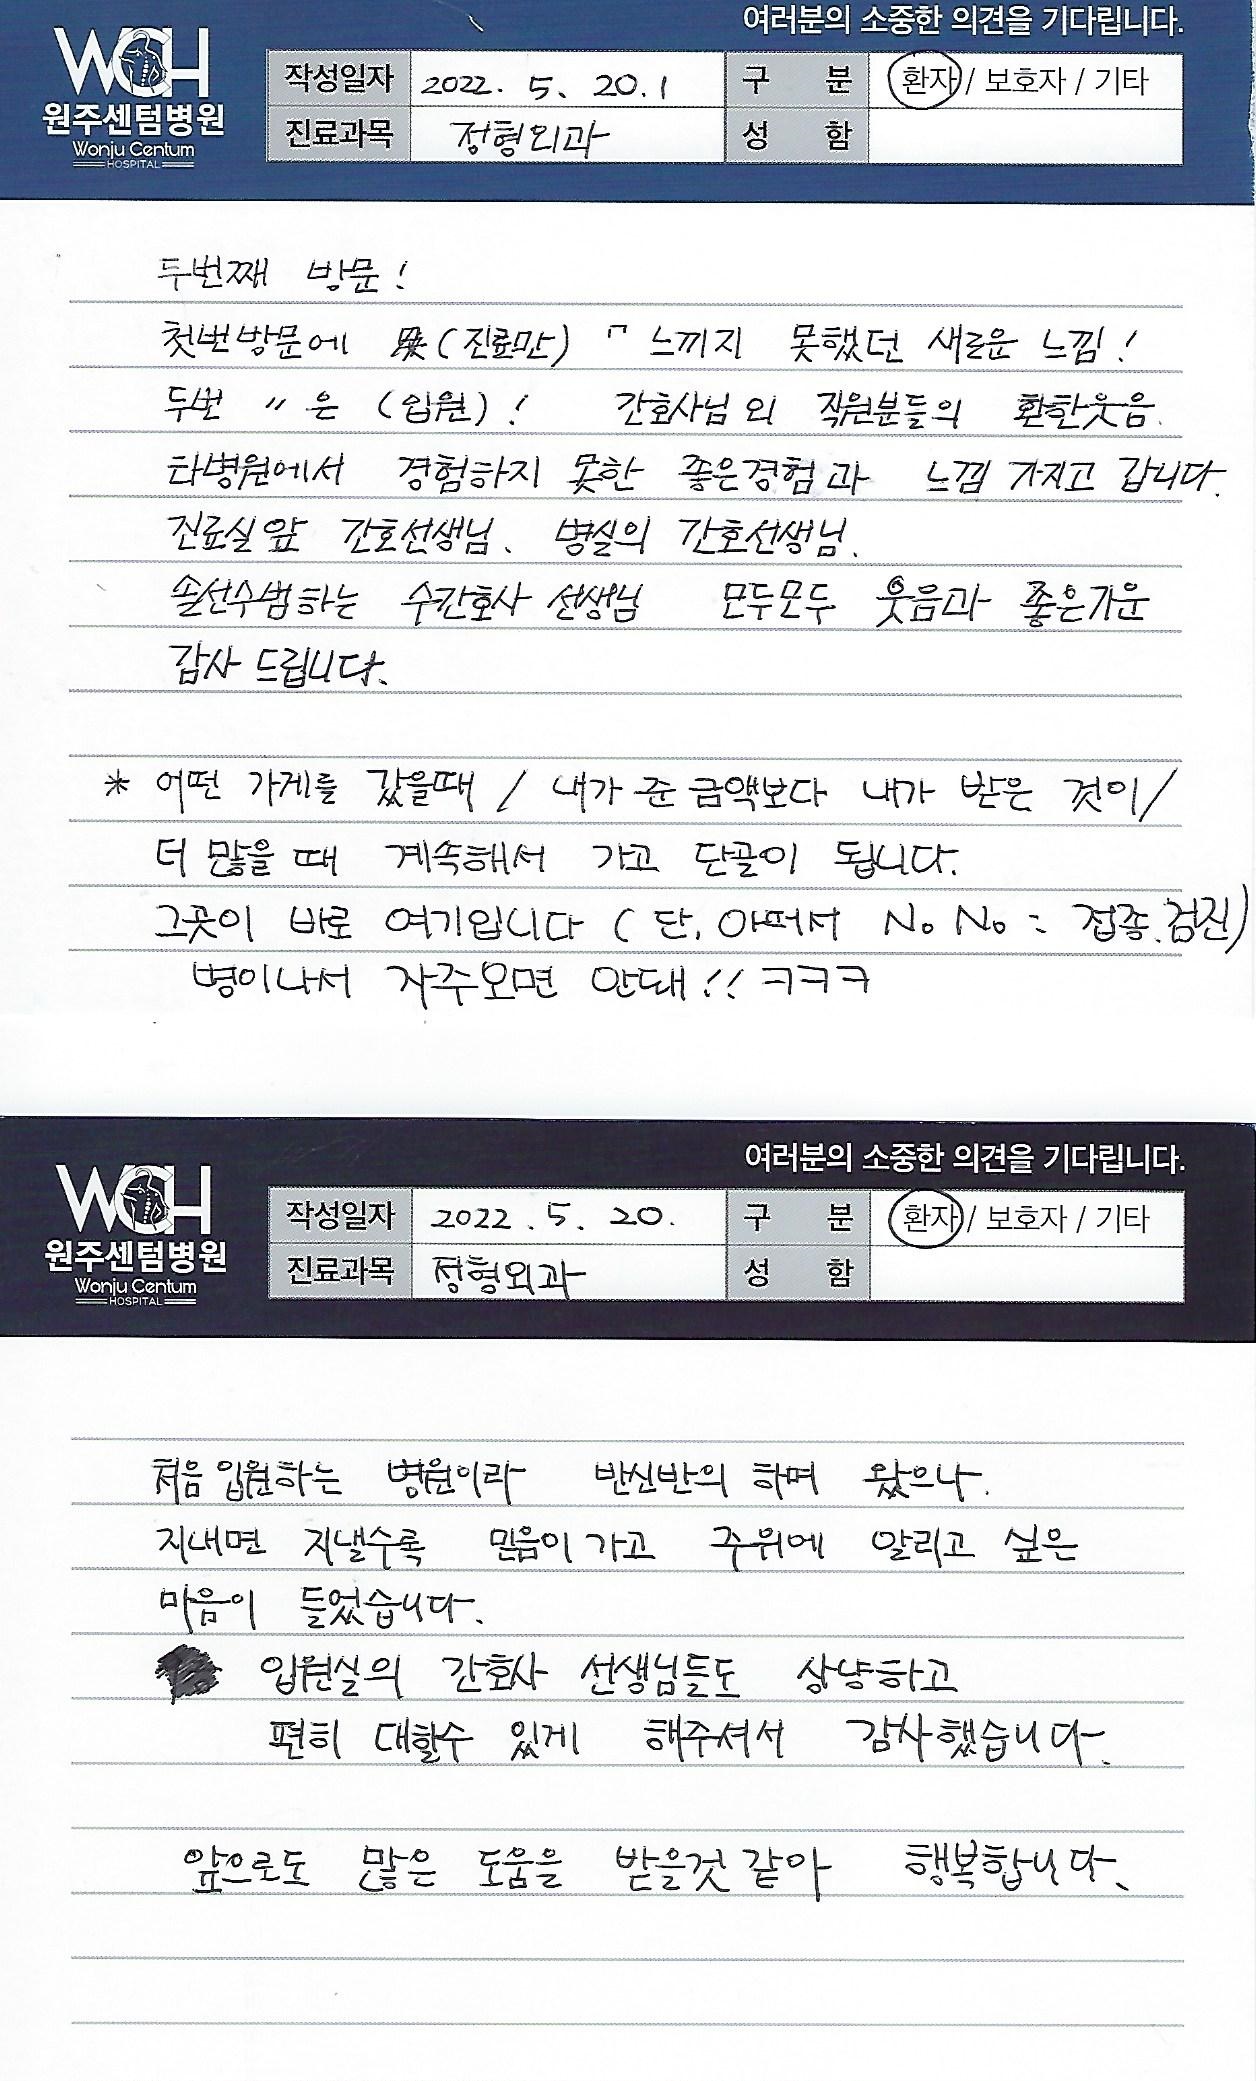 여러분의 소중한 의견을 기다립니다.
WCH
원주센텀병원
Wonju Centum
HOSPITAL
작성일자 2022. 5. 20. 1 구 분 환자 / 보호자 / 기타
진료과목 정형외과 성 함
두번째 방문!
첫번방문에 (진료만) 느끼지 못했던 새로운 느낌!
두번 〃 은 (입원)! 간호사님 외 직원분들의 환한웃음.
타병원에서 경험하지 못한 좋은경험과 느낌 가지고 갑니다.
진료실앞 간호선생님. 병실의 간호선생님.
솔선수범하는 수간호사 선생님 모두모두 웃음과 좋은기운
감사 드립니다.
* 어떤 가게를 갔을때 / 내가 준 금액보다 내가 받은 것이/
더 많을 때 계속해서 가고 단골이 됩니다.
그곳이 바로 여기입니다 (단, 아퍼서 No No : 접종.검진)
병이나서 자주오면 안돼!! ㅋㅋㅋ
여러분의 소중한 의견을 기다립니다.
WCH
원주센텀병원
Wonju Centum
HOSPITAL
작성일자 2022. 5. 20. 구 분 환자 / 보호자 / 기타
진료과목 정형외과 성 함
처음 입원하는 병원이라 반신반의 하며 왔으나.
지내면 지낼수록 믿음이 가고 주위에 알리고 싶은
마음이 들었습니다.
입원실의 간호사 선생님들도 상냥하고
편히 대할수 있게 해주셔서 감사했습니다.
앞으로도 많은 도움을 받을것 같아 행복합니다.